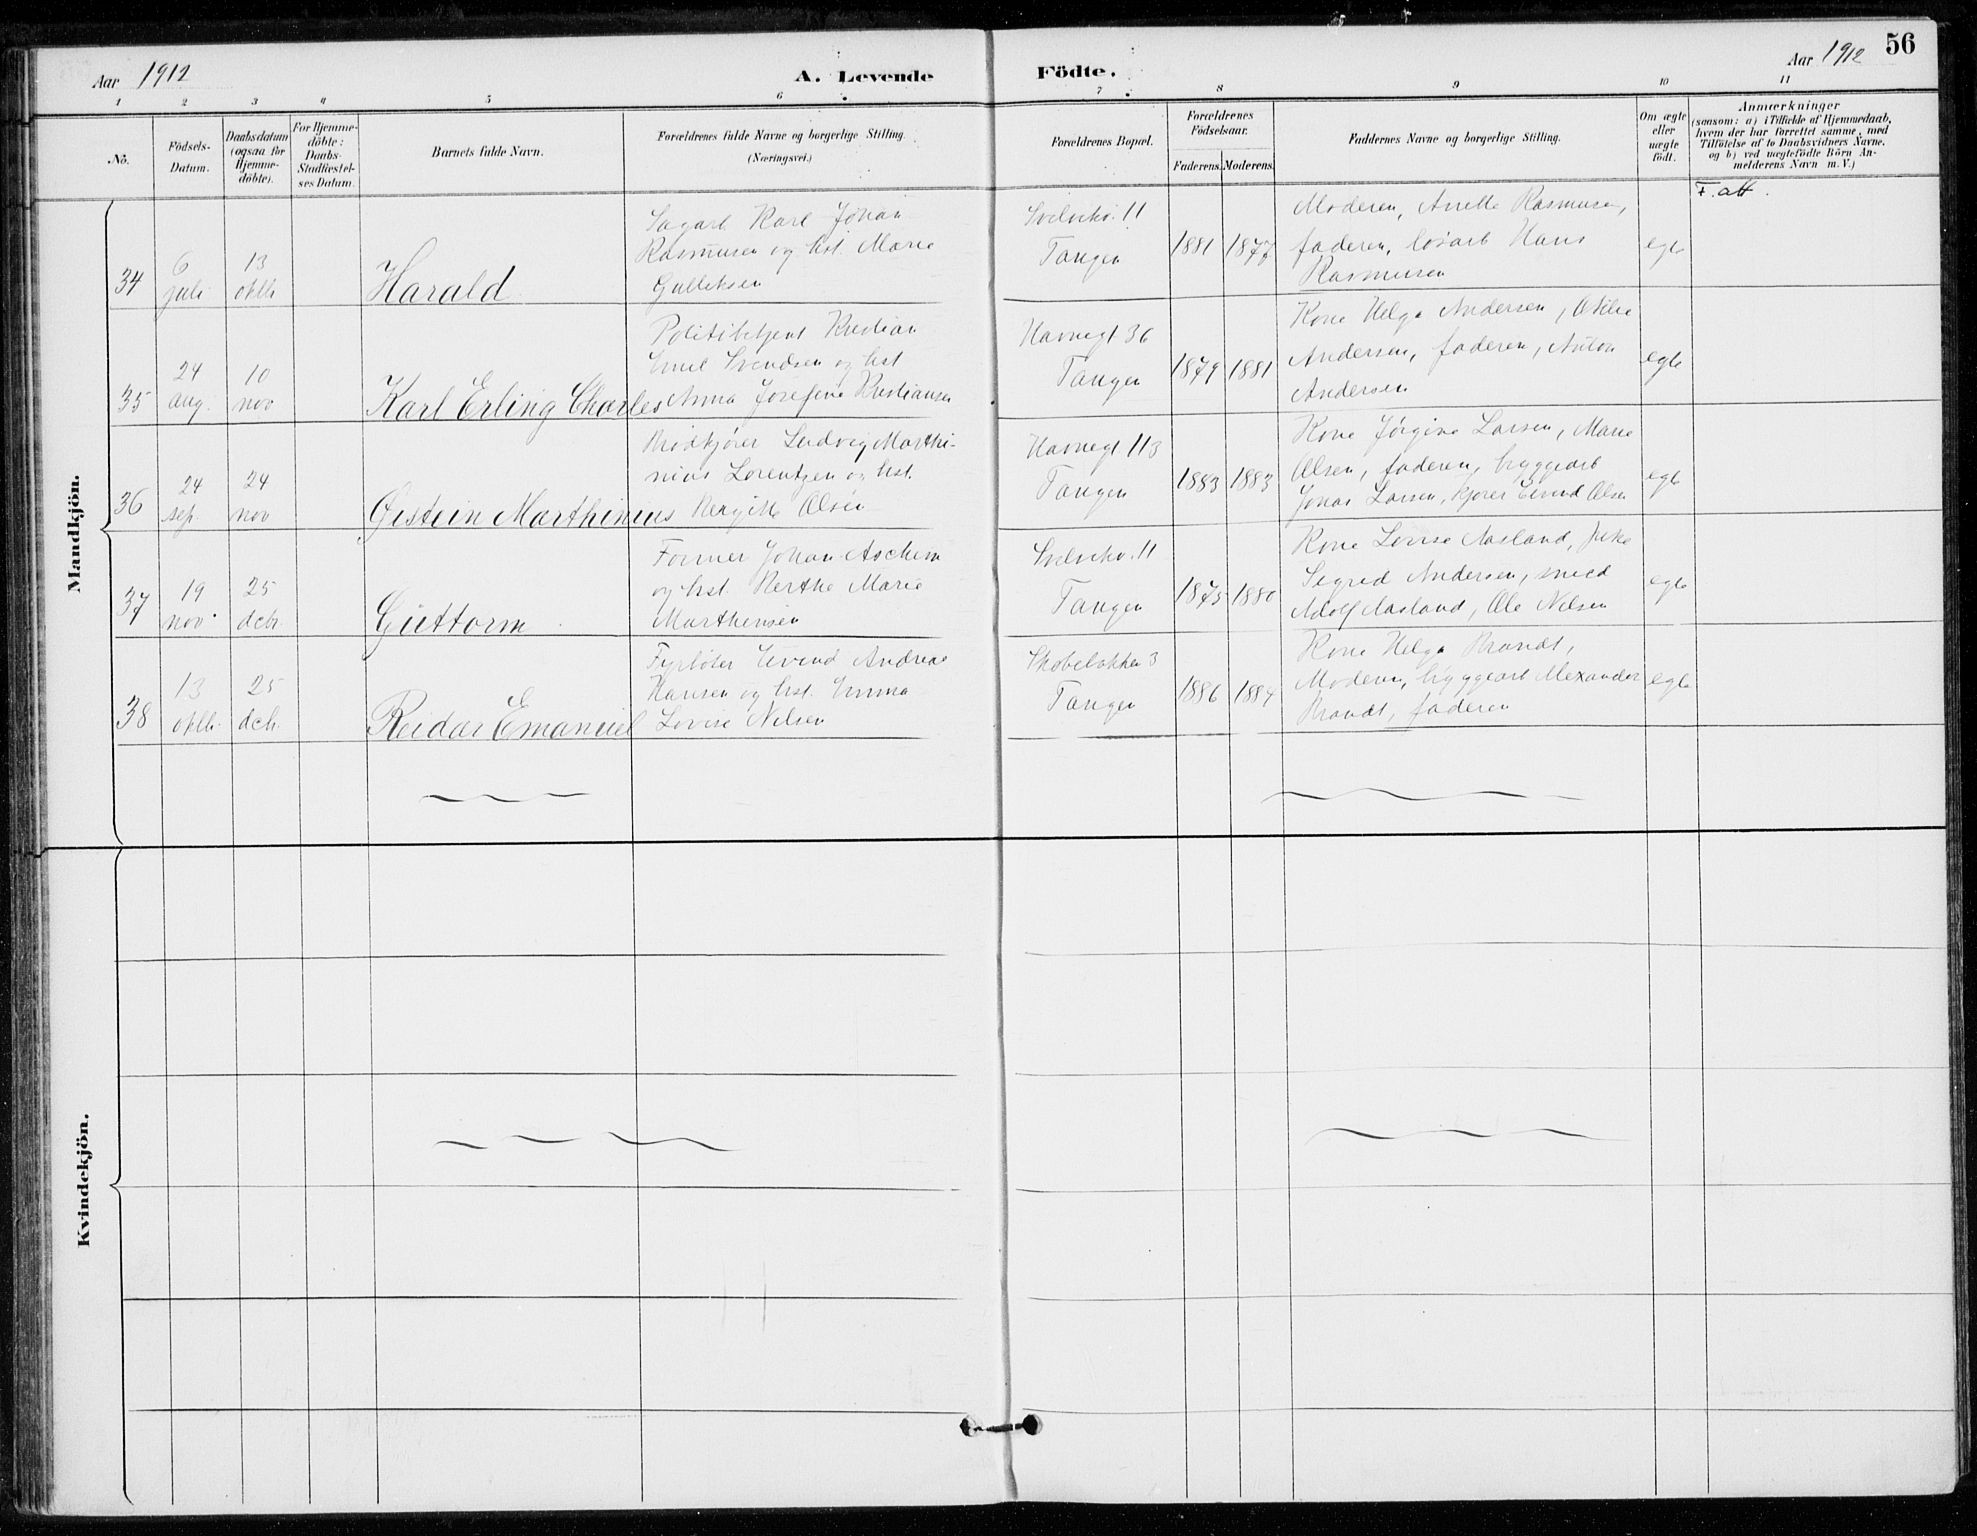 Aar 1912
A. Levende Födte.
Aar 1912
56
1 2 3 4 5 6 7 8 9 10 11
No.
Födsels-
Datum.
Daabsdatum
(ogsaa for
Hjemme-
döbte).
For Hjemme-
döbte:
Daabs-
Stadfæstel-
ses Datum.
Barnets fulde Navn.
Forældrenes fulde Navne og borgerlige Stilling.
(Næringsvei.)
Forældrenes Bopæl.
Forældrenes
Födselsaar.
Faderens. Moderens.
Faddernes Navne og borgerlige Stilling.
Om ægte
eller
uægte
födt.
Anmærkninger
(saasom: a) i Tilfælde af Hjemmedaab,
hvem der har forrettet samme, med
Tilföielse af to Daabsvidners Navne.
og b) ved uægtefödte Börn An-
melderens Navn m. V.)
Mandkjön.
34
6
juli
13
oktb
Harald
Sagarb Karl Johan
Rasmussen og hst. Marie
Gulliksen
Svelvikv. 11
Tangen
1881 1877
Moderen, Anette Rasmusen,
faderen, løsarb Hans
Rasmusen
egte
F. att.
35
24
aug.
10
nov
Karl Erling Charles
Politibetjent Kristian
Emil Svendsen og hst
Anna Josefine Kristiansen
Havnegt 36
Tangen
1879 1881
Kone Helga Andersen, Otilie
Andersen, faderen, Anton
Andersen
egte
36
24
sep.
24
nov
Øistein Marthinius
Brødkjører Ludvig Marthi-
nius Lorentzen og hst.
Bergitte Olsen
Havnegt 113
Tangen
1883 1883
Kone Jørgine Larsen, Marie
Olsen, faderen, bryggearb
Jonas Larsen, kjører Eivind Olsen
egte
37
19
nov.
25
dcb.
Guttorm
Former Johan Aschim
og hst. Berthe Marie
Marthinsen
Svelvikv. 11
Tangen
1875 1880
Kone Lovise Aasland, Pike
Sigrid Andersen, smed
Adolf Aasland, Ole Nilsen
egte
38
13
oktb.
25
dcb.
Reidar Emanuel
Fyrbøter Eivind Andreas
Hansen og hst. Emma
Lovise Nilsen
Skobeløkken 3
Tangen
1886 1884
Kone Helga Brandt,
Moderen, bryggearb Alexander
Brandt, faderen
egte
Kvindekjön.